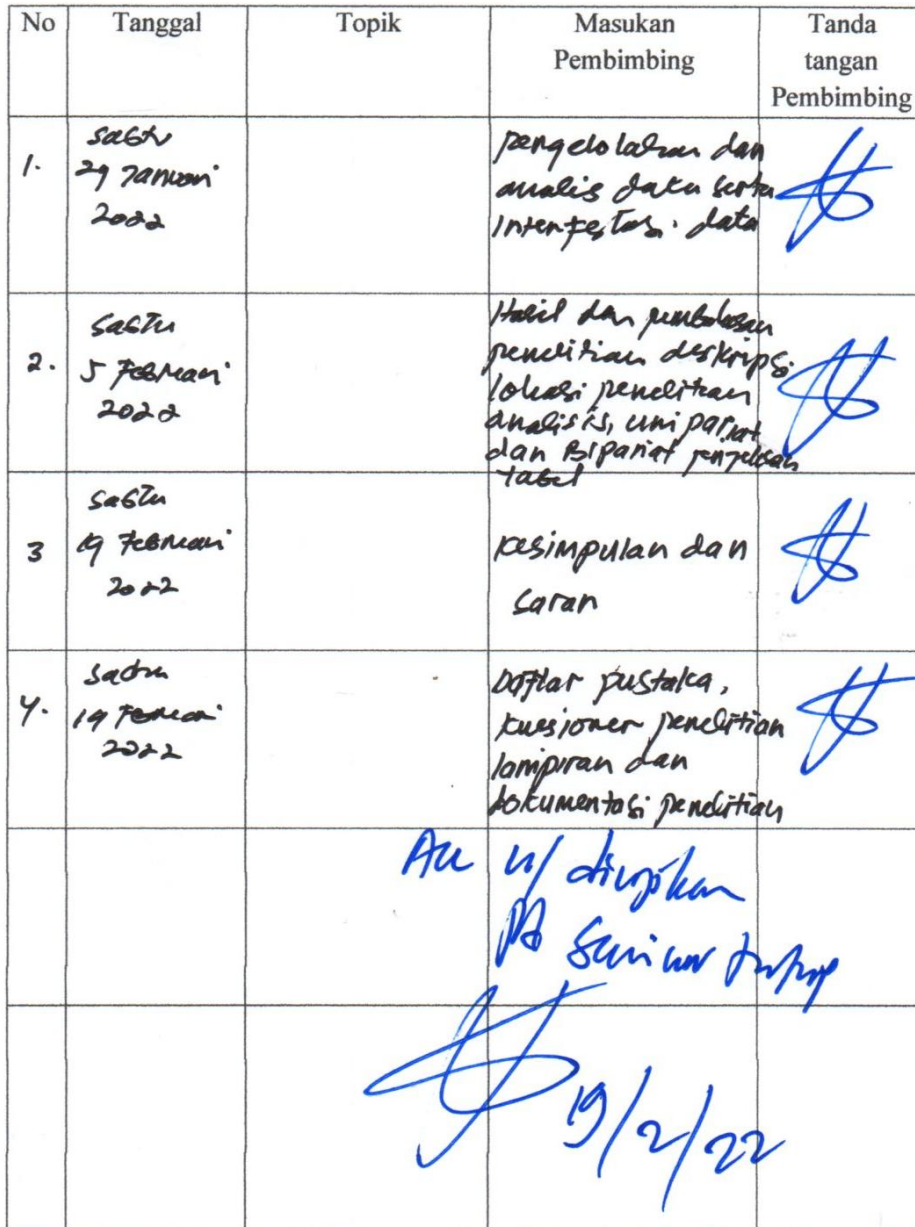 No Tanggal Topik Masukan Pembimbing Tanda tangan Pembimbing
1.
Sabtu
29 Januari
2022
pengelolahan dan
analis data serta
intenfestasi data
2.
Sabtu
5 Februari
2022
Hasil dan pembahasan
penelitian deskripsi
lokasi penelitian
analisis, uni pariat
dan Bipariat penjelasan
tabel
3
Sabtu
19 Februari
2022
kesimpulan dan
saran
4.
Sabtu
19 Februari
2022
Daftar pustaka,
kuesioner penelitian
lampiran dan
dokumentasi penelitian
Acc u/ diujikan
pd Seminar tutup
19/2/22